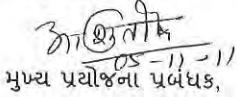 આશુતોષ
05-11-11
મુખ્ય પ્રયોજના પ્રબંધક,